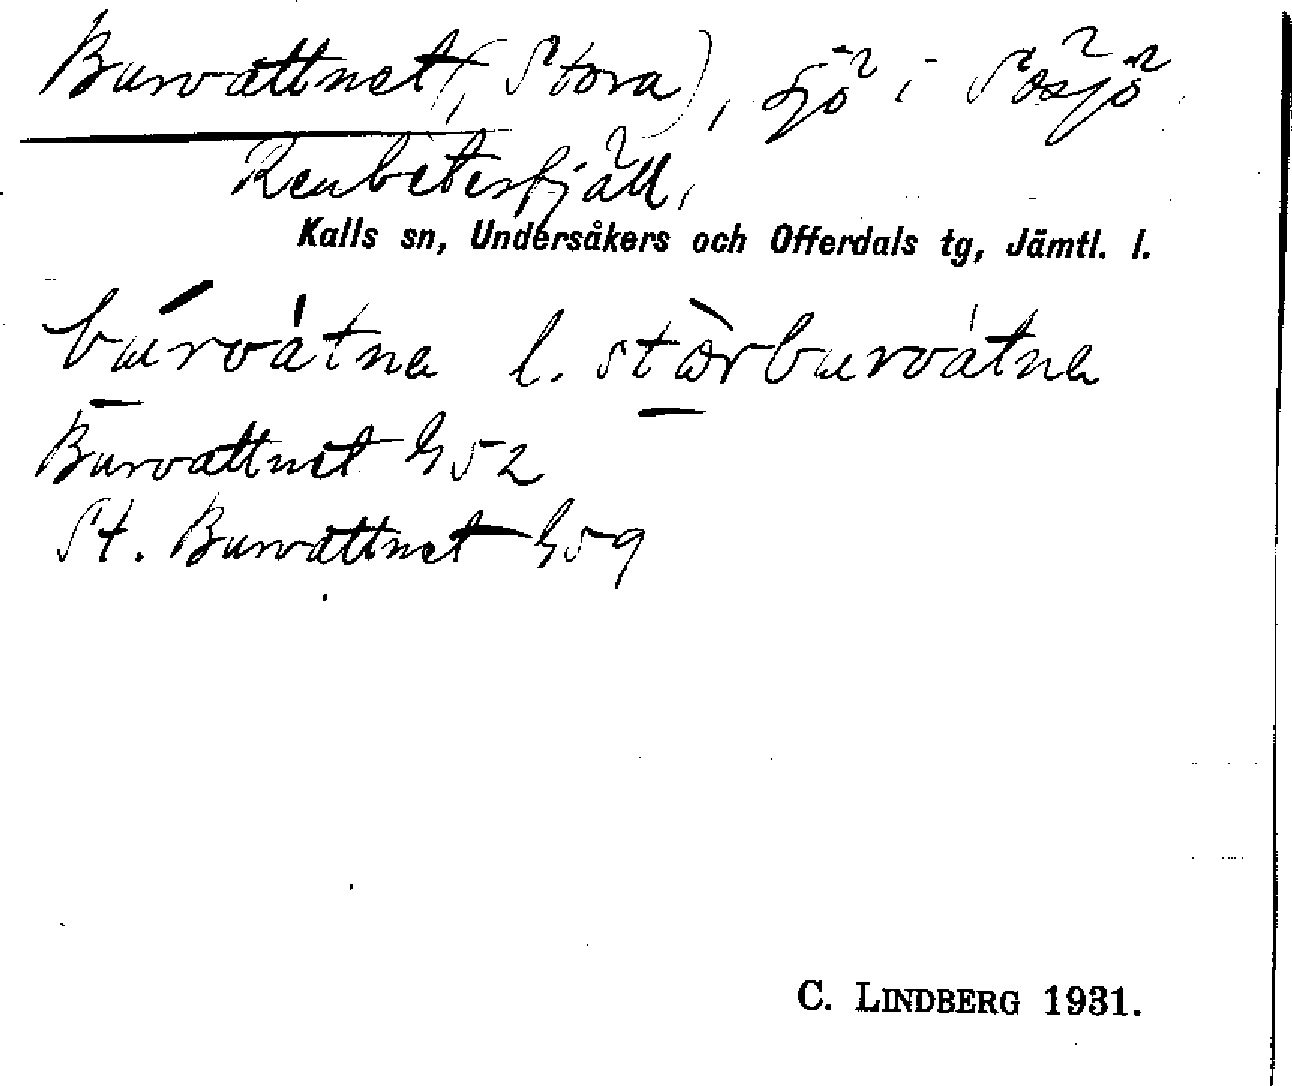 Burvattnet (, Stora), sjö i Sösjö
Renbetesfjäll,
Kalls sn, Undersåkers och Offerdals tg, Jämtl. l.
búrvátna l. stòrburvátna
Burvattnet G52
St. Burvattnet G59
C. LINDBERG 1931.